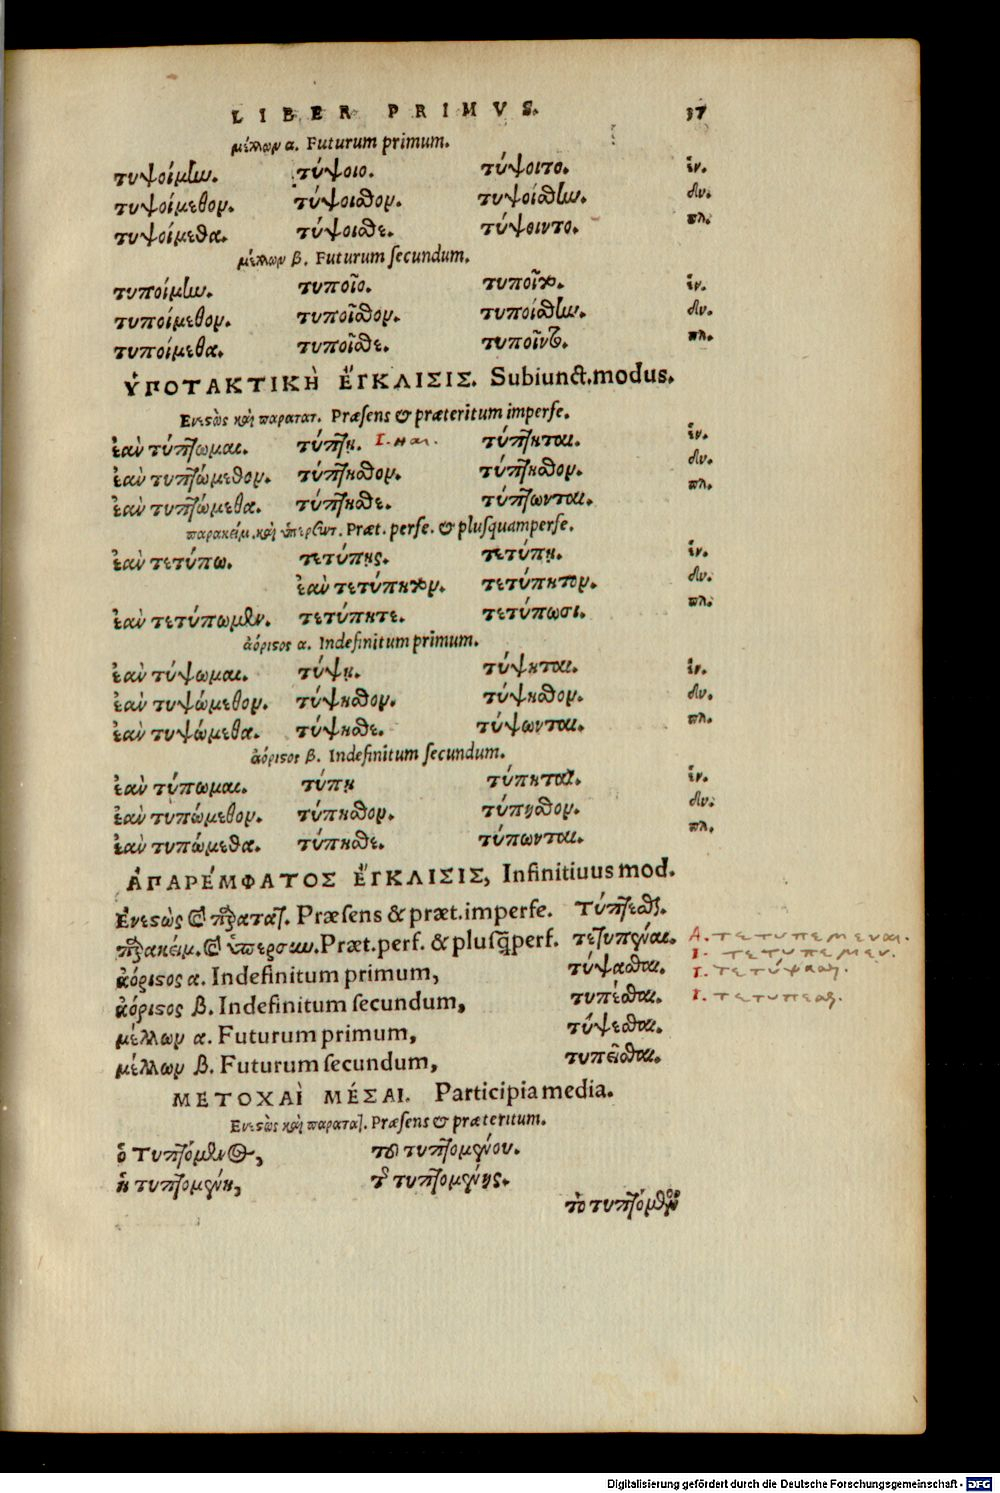 LIBER PRIMVS. 37
μέλλων α. Futurum primum.
τυψοίμην. τύψοιο. τύψοιτο. ἑν.
τυψοίμεθον. τύψοισθον. τυψοίσθην. δυ.
τυψοίμεθα. τύψοισθε. τύψοιντο. πλ.
μέλλων β. Futurum secundum.
τυποίμην. τυποῖο. τυποῖτο. ἑν.
τυποίμεθον. τυποῖσθον. τυποίσθην. δυ.
τυποίμεθα. τυποῖσθε. τυποῖντο. πλ.
ὙΠΟΤΑΚΤΙΚῊ ἜΓΚΛΙΣΙΣ. Subiunct.modus.
Ενεστὼς καὶ παρατατ. Præsens & præteritum imperfe.
ἐὰν τύπτωμαι. τύπτῃ. Ι. ηαι. τύπτηται. ἑν.
ἐὰν τυπτώμεθον. τύπτησθον. τύπτησθον. δυ.
ἐὰν τυπτώμεθα. τύπτησθε. τύπτωνται. πλ.
παρακείμ. καὶ ὑπερσυντ. Præt. perfe. & plusquamperfe.
ἐὰν τετύπω. τετύπῃς. τετύπῃ. ἑν.
ἐὰν τετύπητον. τετύπητον. δυ.
ἐὰν τετύπωμεν. τετύπητε. τετύπωσι. πλ.
ἀόριστος α. Indefinitum primum.
ἐὰν τύψωμαι. τύψῃ. τύψηται. ἑν.
ἐὰν τυψώμεθον. τύψησθον. τύψησθον. δυ.
ἐὰν τυψώμεθα. τύψησθε. τύψωνται. πλ.
ἀόριστος β. Indefinitum secundum.
ἐὰν τύπωμαι. τύπῃ τύπηται. ἑν.
ἐὰν τυπώμεθον. τύπησθον. τύπησθον. δυ.
ἐὰν τυπώμεθα. τύπησθε. τύπωνται. πλ.
ἈΠΑΡΈΜΦΑΤΟΣ ἜΓΚΛΙΣΙΣ, Infinitiuus mod.
Ενεστὼς καὶ παρατατ. Præsens & præt. imperfe. Τύπτεσθαι.
παρακείμ. καὶ ὑπερσυν. Præt. perf. & plusq̃perf. τετυπέναι. Α. τετυπεμεναι.
Ι. τετυπεμεν.
ἀόριστος α. Indefinitum primum, τύψασθαι. Ι. τετύψασθαι.
ἀόριστος β. Indefinitum secundum, τυπέσθαι. Ι. τετυπεσθαι.
μέλλων α. Futurum primum, τύψεσθαι.
μέλλων β. Futurum secundum, τυπεῖσθαι.
ΜΕΤΟΧΑῚ ΜΈΣΑΙ. Participia media.
Ενεστὼς καὶ παρατατ. Præsens & præteritum.
ὁ Τυπτόμενος, τοῦ τυπτομένου.
ἡ τυπτομένη, τῆς τυπτομένης.
τὸ τυπτόμενον
Digitalisierung gefördert durch die Deutsche Forschungsgemeinschaft - DFG